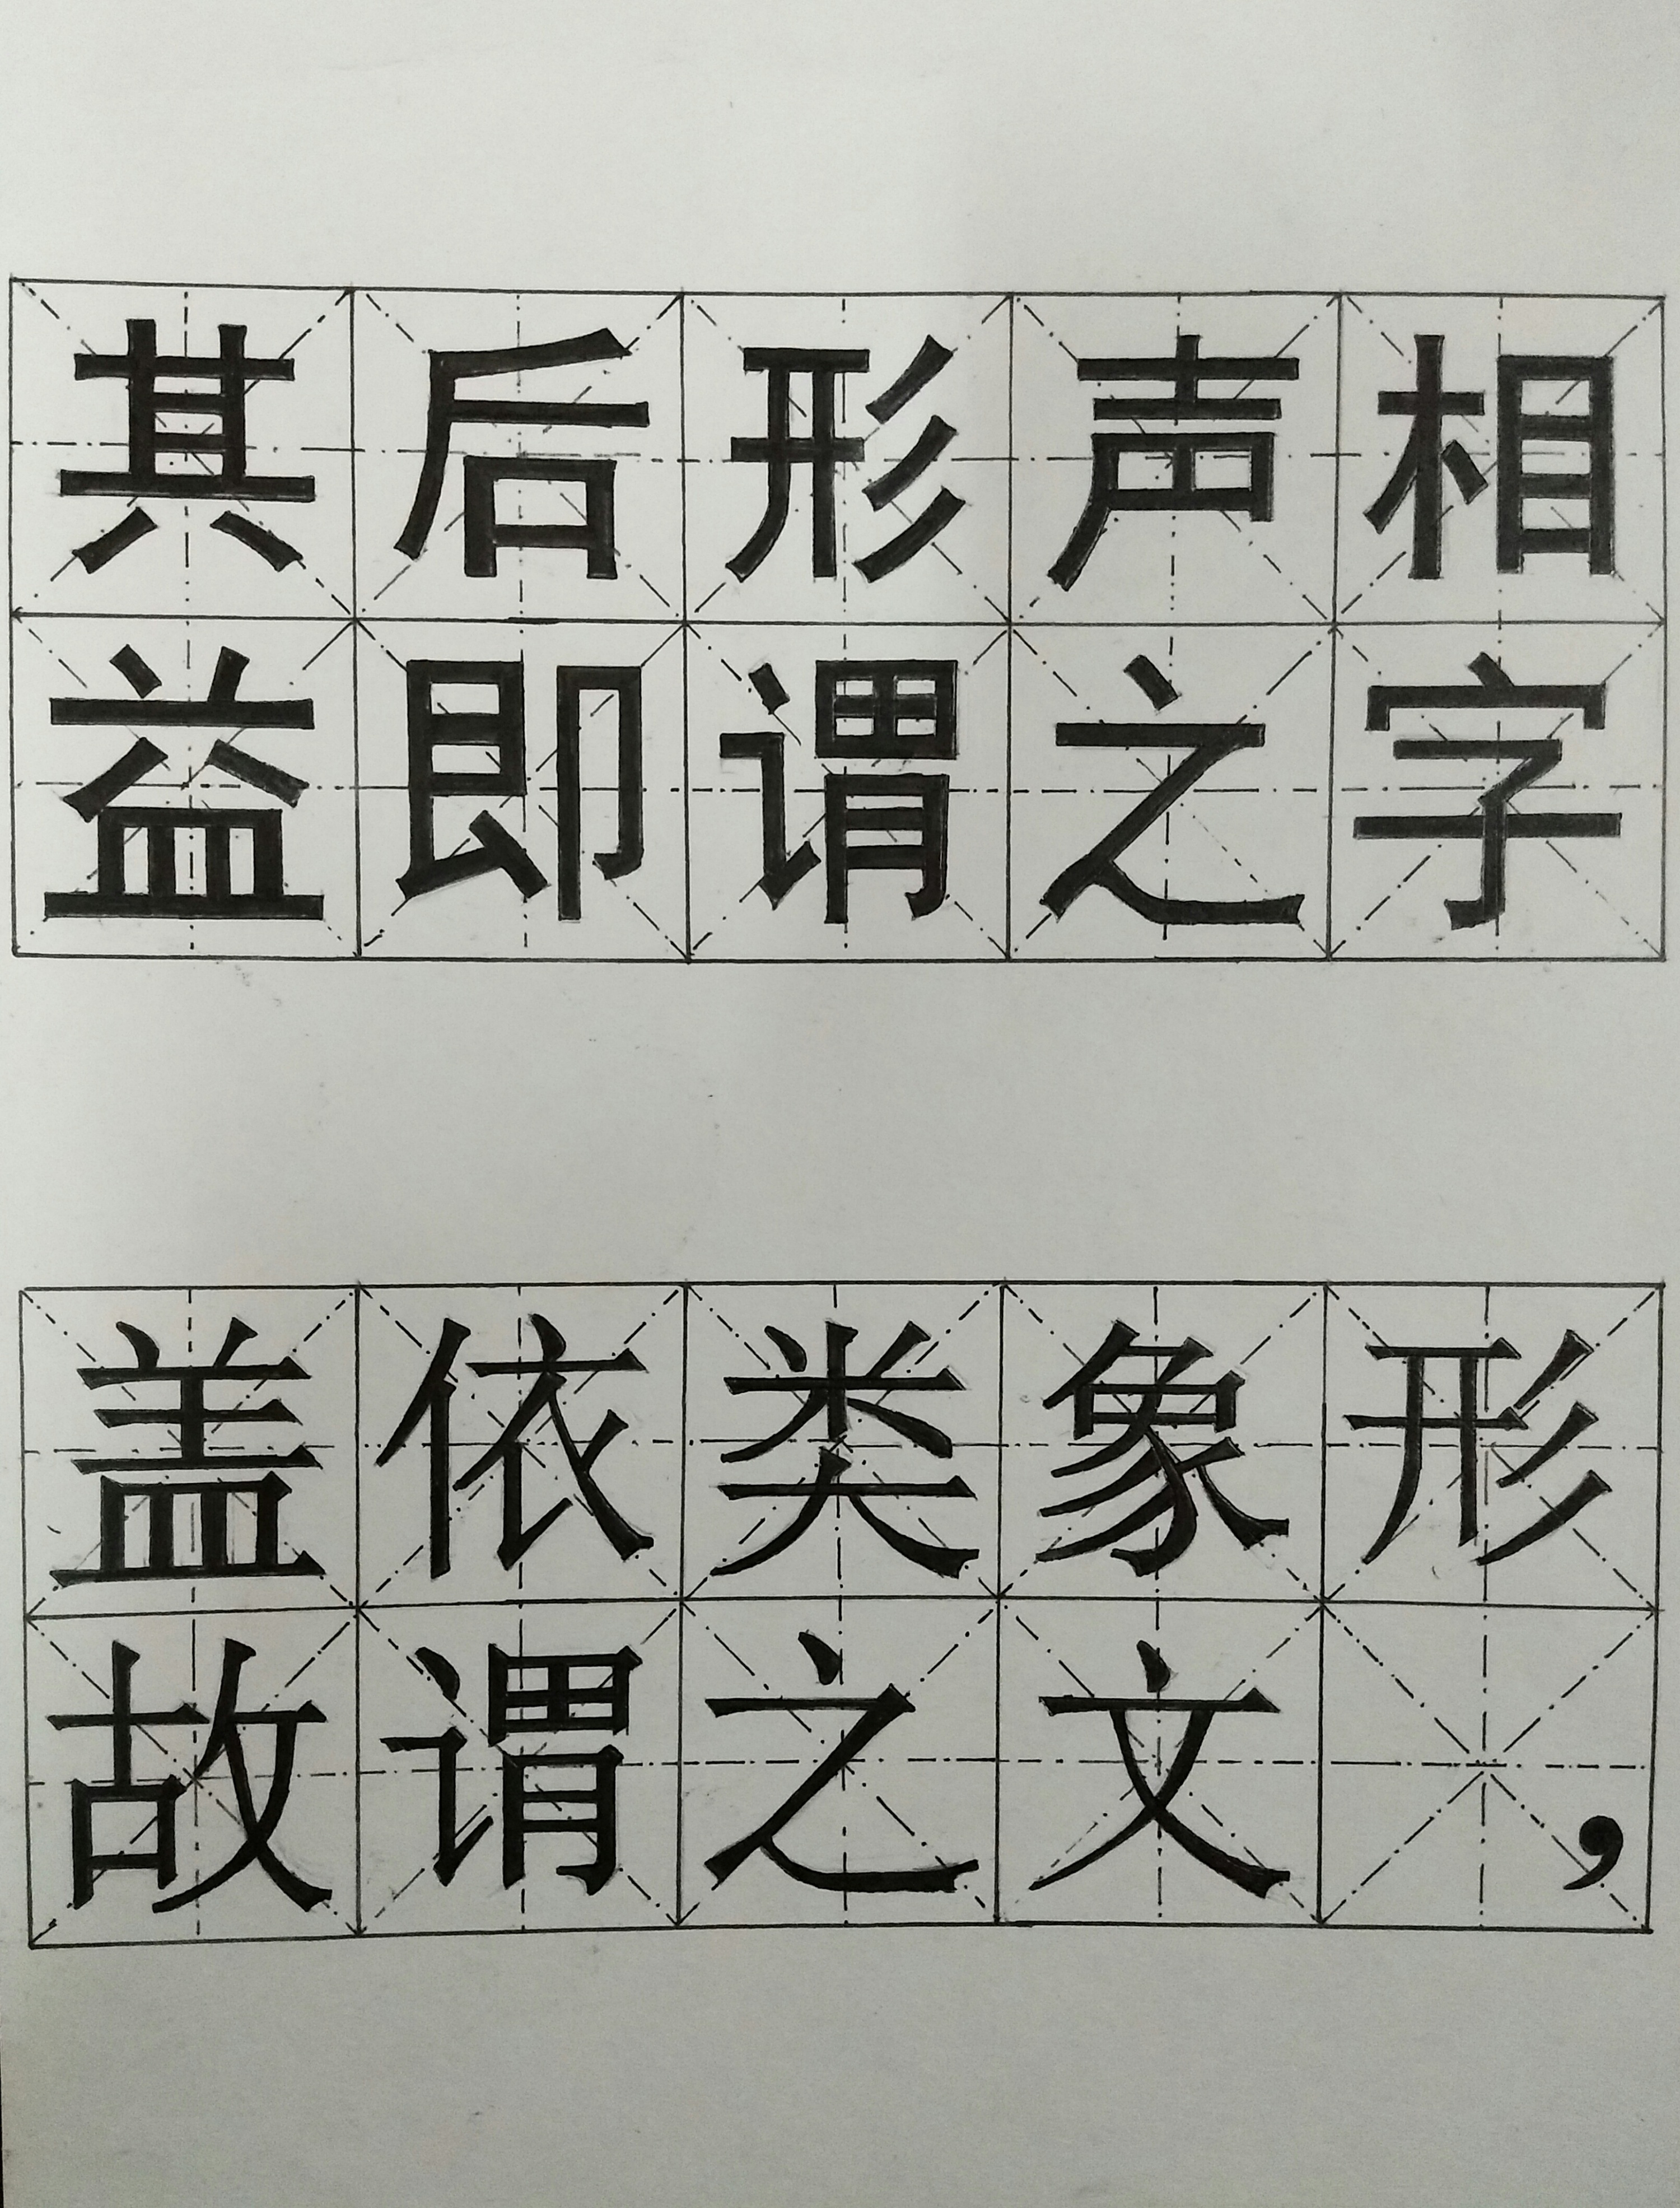 其后形声相
益即谓之字
盖依类象形
故谓之文，